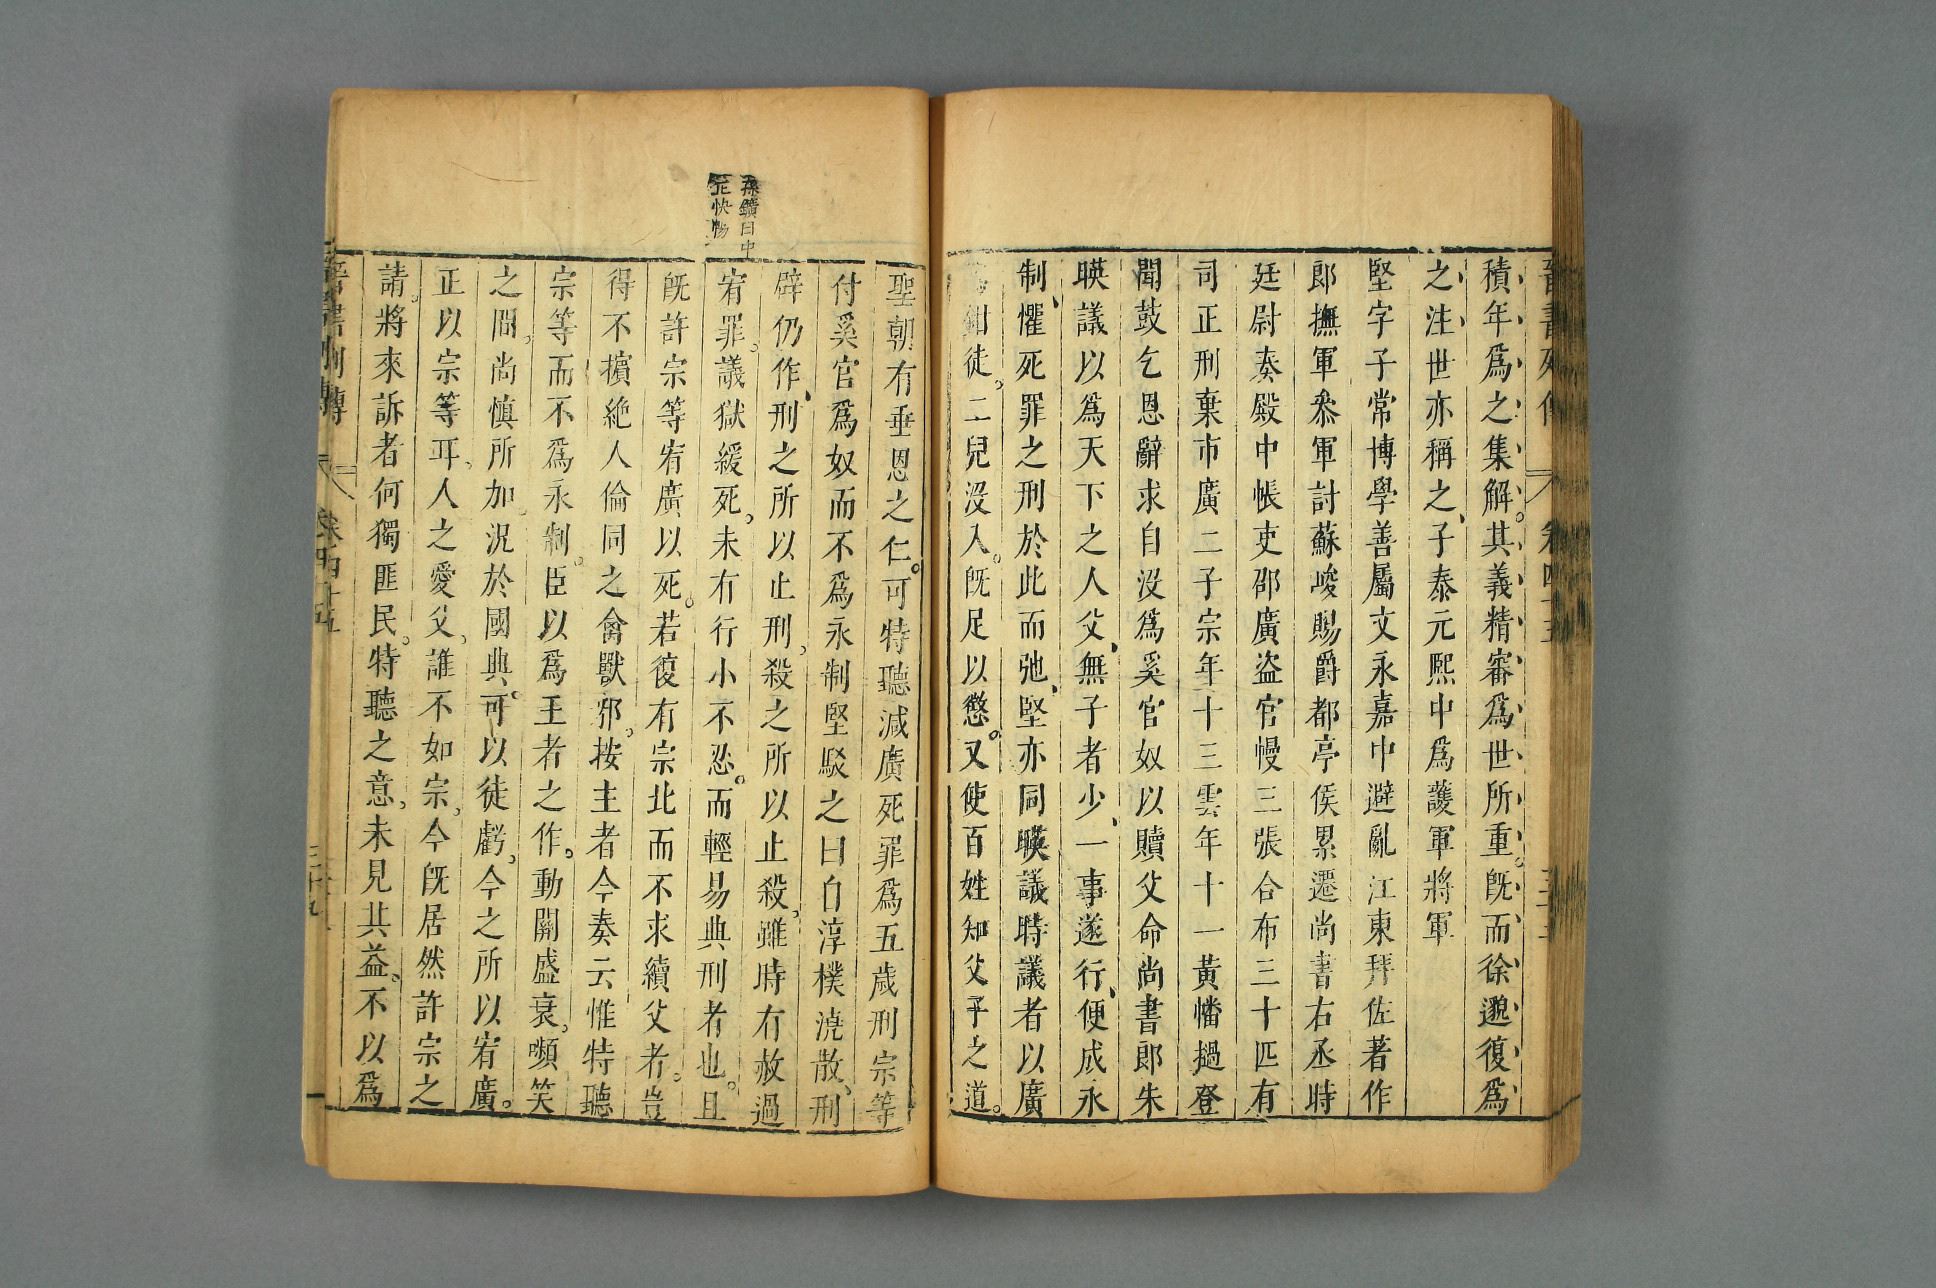 晉書列傳 卷四十五
積年爲之集解。其義精審爲世所重。旣而徐邈復爲
之注世亦稱之、子泰元熙中爲護軍將軍
堅字子常博學善屬文永嘉中避亂江東拜佐著作
郎撫軍叅軍討蘇峻賜爵都亭侯累遷尚書右丞時
廷尉奏殿中帳吏邵廣盜官幔三張合布三十匹有
司正刑棄市廣二子宗年十三雲年十一黃幡撾登
聞鼓乞恩辭求自沒爲奚官奴以贖父命尚書郎朱
暎議以爲天下之人父、無子者少、一事遂行、便成永
制、懼死罪之刑於此而弛、堅亦同暎議時議者以廣
鉗徒。二兒沒入。旣足以懲。又使百姓知父子之道。
聖朝有垂恩之仁。可特聽減廣死罪爲五歲刑宗等
付奚官爲奴而不爲永制堅駁之曰自淳樸澆散、刑
辟仍作、刑之所以止刑、殺之所以止殺。雖時有赦過
宥罪。議獄緩死。未有行小不忍。而輕易典刑者也。且
旣許宗等宥廣以死。若復有宗比而不求續父者。豈
得不擯絶人倫同之禽獸邪。按主者今奏云惟特聽
宗等而不爲永制。臣以爲王者之作。動關盛衰、嚬笑
之間、尚愼所加、況於國典。可以徒虧、今之所以宥廣。
正以宗等耳、人之愛父、誰不如宗、今旣居然許宗之
請。將來訴者何獨匪民。特聽之意、未見其益。不以爲
晉書列傳 卷四十五 三十九
孫鑛曰中
正快暢